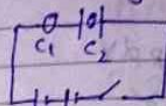 C₁ C₂